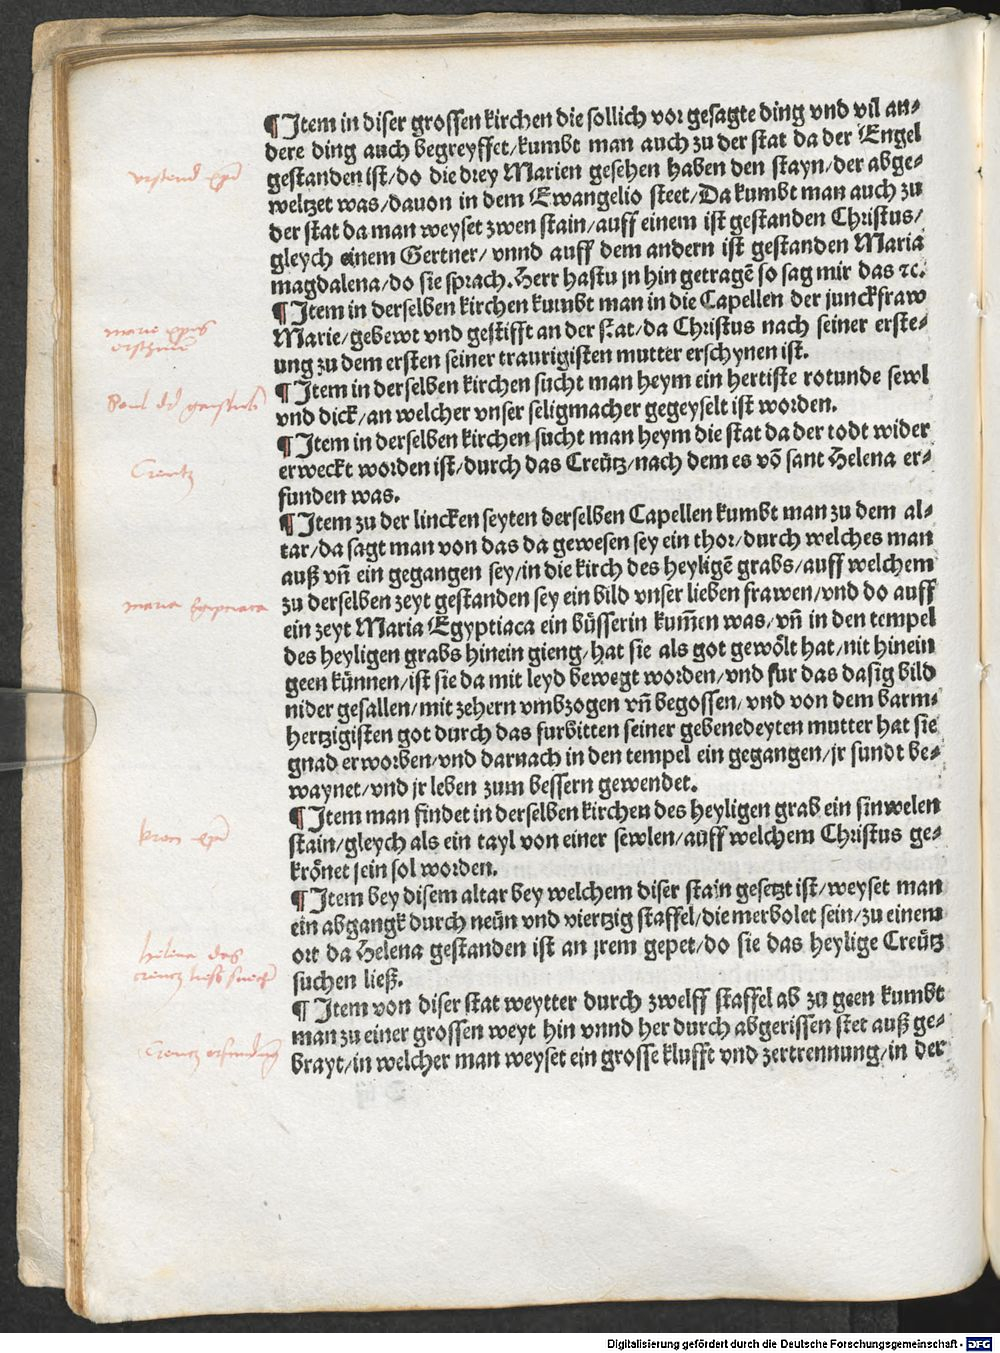 ¶ Item in diser grossen kirchen die sollich vor gesagte ding vnd vil an⸗
dere ding auch begreyffet/kumbt man auch zu der stat da der Engel
gestanden ist/do die drey Marien gesehen haben den stayn/der abge⸗
weltzet was/dauon in dem Ewangelio steet/Da kumbt man auch zu
der stat da man weyset zwen stain/auff einem ist gestanden Christus/
gleych einem Gertner/vnnd auff dem andern ist gestanden Maria
magdalena/do sie sprach. Herr hastu jn hin getragẽ so sag mir das ⁊c.
¶ Item in derselben kirchen kumbt man in die Capellen der junckfraw
Marie/gebewt vnd gestifft an der stat/da Christus nach seiner erste⸗
ung zu dem ersten seiner traurigisten mutter erschynen ist.
¶ Item in derselben kirchen sucht man heym ein hertiste rotunde sewl
vnd dick/an welcher vnser seligmacher gegeyselt ist worden.
¶ Item in derselben kirchen sucht man heym die stat da der todt wider
erweckt worden ist/durch das Creütz/nach dem es võ sant Helena er⸗
funden was.
¶ Item zu der lincken seyten derselben Capellen kumbt man zu dem al⸗
tar/da sagt man von das da gewesen sey ein thor/durch welches man
auß vñ ein gegangen sey/in die kirch des heyligẽ grabs/auff welchem
zu derselben zeyt gestanden sey ein bild vnser lieben frawen/vnd do auff
ein zeyt Maria Egyptiaca ein büsserin kum̃en was/vñ in den tempel
des heyligen grabs hinein gieng/hat sie als got gewölt hat/nit hinein
geen künnen/ist sie da mit leyd bewegt worden/vnd fur das dasig bild
nider gefallen/mit zehern vmbzogen vñ begossen/vnd von dem barm⸗
hertzigisten got durch das furbitten seiner gebenedeyten mutter hat sie
gnad erworben/vnd darnach in den tempel ein gegangen/jr sundt be⸗
waynet/vnd jr leben zum bessern gewendet.
¶ Item man findet in derselben kirchen des heyligen grab ein sinwelen
stain/gleych als ein tayl von einer sewlen/auff welchem Christus ge⸗
krönet sein sol worden.
¶ Item bey disem altar bey welchem diser stain gesetzt ist/weyset man
ein abgangk durch neün vnd viertzig staffel/die merbolet sein/zu einem
ort da Helena gestanden ist an jrem gepet/do sie das heylige Creütz
suchen ließ.
¶ Item von diser stat weytter durch zwelff staffel ab zu geen kumbt
man zu einer grossen weyt hin vnnd her durch abgerissen stet auß ge⸗
brayt/in welcher man weyset ein grosse klufft vnd zertrennung/in der
Creutz
maria Egiptiaca
helena das
creutz ließ suechē
Digitalisierung gefördert durch die Deutsche Forschungsgemeinschaft - DFG